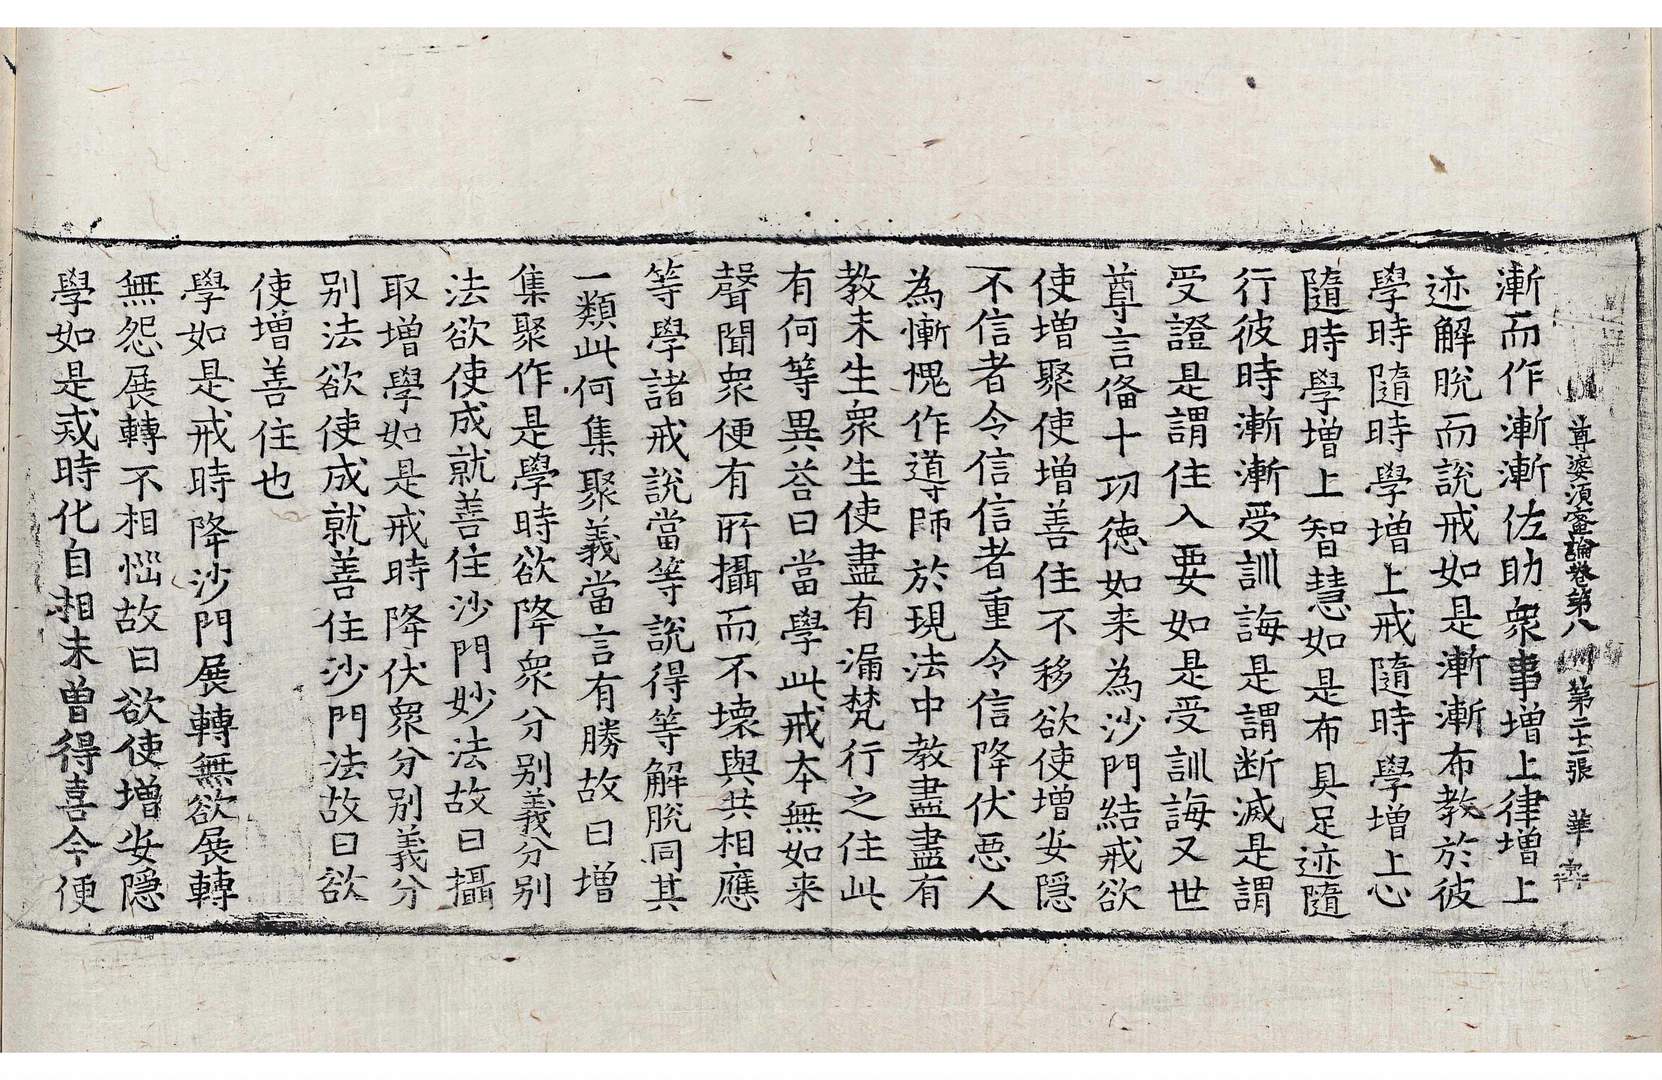 尊婆須蜜論卷第八 第二十張 華
漸而作漸漸佐助衆事增上律增上
迹解脫而說戒如是漸漸布教於彼
學時隨時學增上戒隨時學增上心
隨時學增上智慧如是布具足迹隨
行彼時漸漸受訓誨是謂断滅是謂
受證是謂住入要如是受訓誨又世
尊言俻十㓛德如来為沙門結戒欲
使增聚使增善住不移欲使增安隱
不信者令信信者重令信降伏惡人
為慚愧作導師於現法中教盡盡有
教未生衆生使盡有漏梵行之住此
有何等異荅曰當學此戒夲無如来
聲聞衆便有所攝而不壞與共相應
等學諸戒說當等說得等解脫同其
一類此何集聚義當言有勝故曰增
集聚作是學時欲降衆分別義分別
法欲使成就善住沙門妙法故曰攝
取增學如是戒時降伏衆分別義分
別法欲使成就善住沙門法故曰欲
使增善住也
學如是戒時降沙門展轉無欲展轉
無怨展轉不相惱故曰欲使增安隱
學如是戒時化自相未曽得喜今便